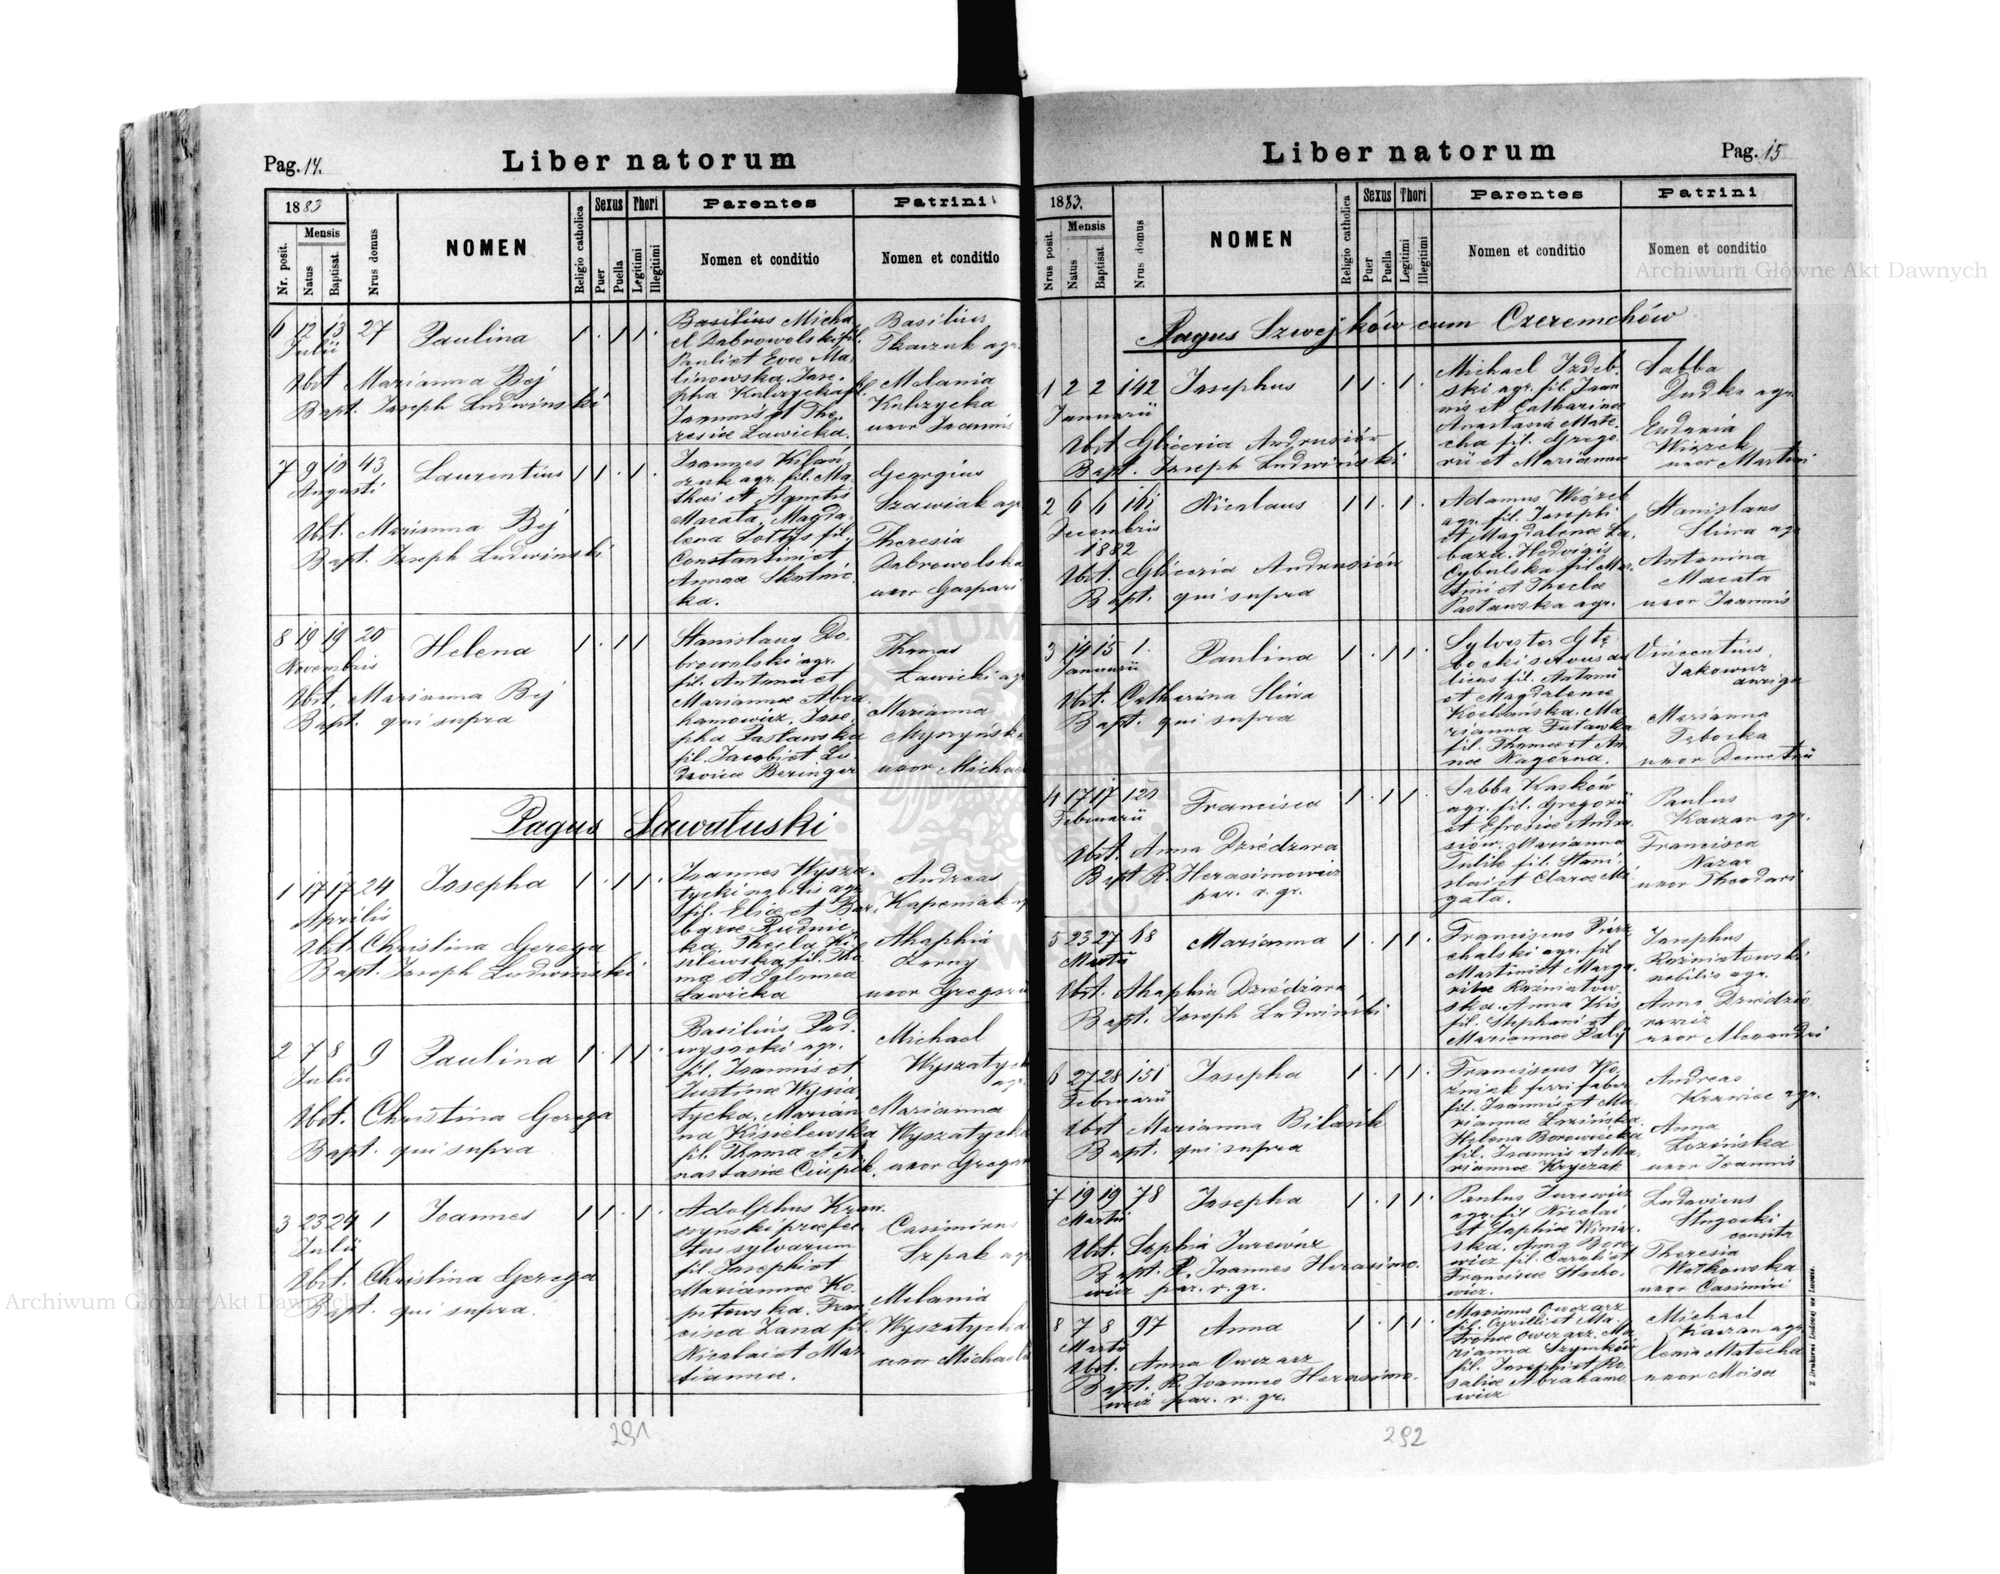 Pag. 14.
Liber natorum
1883
Nr. posit.
Mensis
Natus
Baptisat.
Nrus domus
NOMEN
Religio catholica
Sexus
Puer
Puella
Thori
Legitimi
Illegitimi
Parentes
Nomen et conditio
Patrini
Nomen et conditio
6 12 13 27 Paulina
Julii
Obst Marianna Bej
Bapt. Joseph Ludwinski
Basilius Micha
el Dabrowolski fil.
Pauli et Eva Ma
linowska. Jose
pha Kulczycka fil.
Joannis et The
resiae Lawicka.
Basilius
Tkaczuk agr.
Melania
Kulczycka
uxor Joannis
7 9 10 43 Laurentius
Augusti
Obst. Marianna Bej
Bapt. Joseph Ludwinski
Joannes
agr. fil. Ma
thaei et Agnetis
Macata. Magda
lena Soltys fil.
Constantini et
Annae
ka.
Georgius
Szawiak agr.
Theresia
Dabrowolska
uxor Gaspari
8 19 19 20 Helena
Novembris
Obst. Marianna Bej
Bapt. qui supra
Stanislaus Do
browolski agr.
fil. Antonii et
Mariannae Abra
hamowicz. Jose
pha Pastawska
fil. Jacobi et Lu
dovicae Beringer
Thomas
Lawicki agr
Marianna
uxor Michae
Pagus Sawaluski
1 17 17 24 Josepha
Aprilis
Obst. Christina Gerega
Bapt. Joseph Ludwinski
Joannes Wysza
tycki nobilis agr
fil. Eliae et Bar
barae Rudnic
ka. Thecla Ki
silewska fil. Tho
mae et Salomea
Lawicka
Andreas
Kapeniak
Ahaphia
Czorny
uxor Gregorii
2 7 8 9 Paulina
Julii
Obst. Christina Gerega
Bapt. qui supra
Basilius Pod
wysocki agr.
fil. Joannis et
Justinae Wysza
tycka. Marian
na Kisielewska
fil. Thoma et A
nastasiae Ciupik.
Michael
Wyszatycki
agr.
Marianna
Wyszatycka
uxor Gregor
3 23 24 1 Joannes
Julii
Obst. Christina Gerega
Bapt. qui supra.
Adolphus Kra
szynski praefec
tus sylvarum
fil. Josephi et
Mariannae Ko
pitowska. Fran
cisca Zand fil.
Nicolai et Mar
iannae.
Casimirus
Szpak agr
Melania
Wyszatycka
uxor Michaelis
291
Liber natorum
Pag. 15
1883.
Nrus posit.
Mensis
Natus
Baptisat.
Nrus domus
NOMEN
Religio catholica
Sexus
Puer
Puella
Thori
Legitimi
Illegitimi
Parentes
Nomen et conditio
Patrini
Nomen et conditio
Pagus Szwejków cum Czeremchów
1 2 2 142 Josephus
Januarii
Obst Gliceria Andrusiów
Bapt. Joseph Ludwiński
Michael Izdeb
ski agr. fil. Joan
nis et Catharinae
Anastasia Mate
cha fil. Grego
rii et Mariannae
Sabba
Dudka agr.
Eudonia
Wiązek
uxor Martini
2 6 6 161 Nicolaus
Decembris
1882
Obst. Gliceria Andrusiów
Bapt. qui supra
Adamus Wiązek
agr. fil. Josephi
et Magdalenae La
baza. Hedvigis
Cybulska fil. Mar
tini et Thecla
Pastawska agr.
Stanislaus
Sliwa agr
Antonina
Macata
uxor Joannis
3 14 15 1. Paulina
Januarii
Obst. Catharina Sliwa
Bapt. qui supra
Sylvester Głę
bocki servus au
licus fil. Antonii
et Magdalenae
Kochańska. Ma
rianna Futawka
fil. Thomae et An
nae Nagórna.
Vincentius
Jakowicz
auriga
Marianna
uxor Demetrii
4 17 17 121 Francisca
Februarii
Obst. Anna Dziedzara
Bapt R. Herasimowicz
par. r. gr.
Sabba Kasków
agr. fil. Gregorii
et Efrosiae Andru
siów. Marianna
Tulik fil. Stani
slai et Clarae Ma
gata.
Paulus
Kaczan agr.
Francisca
Nazar
uxor Theodori
5 23 27 68 Marianna
Martii
Obst. Ahaphia Dziedzara
Bapt. Joseph Ludwiński
Franciscus Pierz
chalski agr. fil
Martini et Marga
ritae Rożniatow
ska. Anna Kis
fil. Stephani et
Mariannae Palij
Josephus
Rożniatowski
nobilis agr.
Anna Dziedzic
uxor Alexandri
6 27 28 151 Josepha
Februarii
Obst Marianna Bilasik
Bapt. qui supra
Franciscus Ko
źmiak ferri faber
fil. Joannis et Ma
rianna Łozińska.
Helena Borowiecka
fil. Joannis et Ma
riannae Kryczak
Andreas
Krawiec agr.
Anna
Łozińska
uxor Joannis
7 19 19 78 Josepha
Martii
Obst. Sophia Jurewicz
Bapt. R. Joannes Herasimo
wicz par. r. gr.
Paulus Jurewicz
agr. fil Nicolai
et Sophiae Winiar
ska. Anna Boro
wicz fil. Caroli et
Franciscae Stacho
wicz.
Ludovicus
Theresia
Witkowska
uxor Casimiri
8 7 8 97 Anna
Martii
Obst. Anna Owczarz
Bapt. R. Joannes Herasimo
wicz par. r. gr.
Maximus Owczarz
fil. Cyrilli et Ma
tronae Owczarz. Ma
rianna Szymków
fil. Josephi et Ro
saliae Abrahamo
wicz
Michael
Kaczan agr
Xenia Matecha
uxor Moisa
Z Drukarni Ludowej we Lwowie.
292
Archiwum Główne Akt Dawnych
Archiwum Główne Akt Dawnych